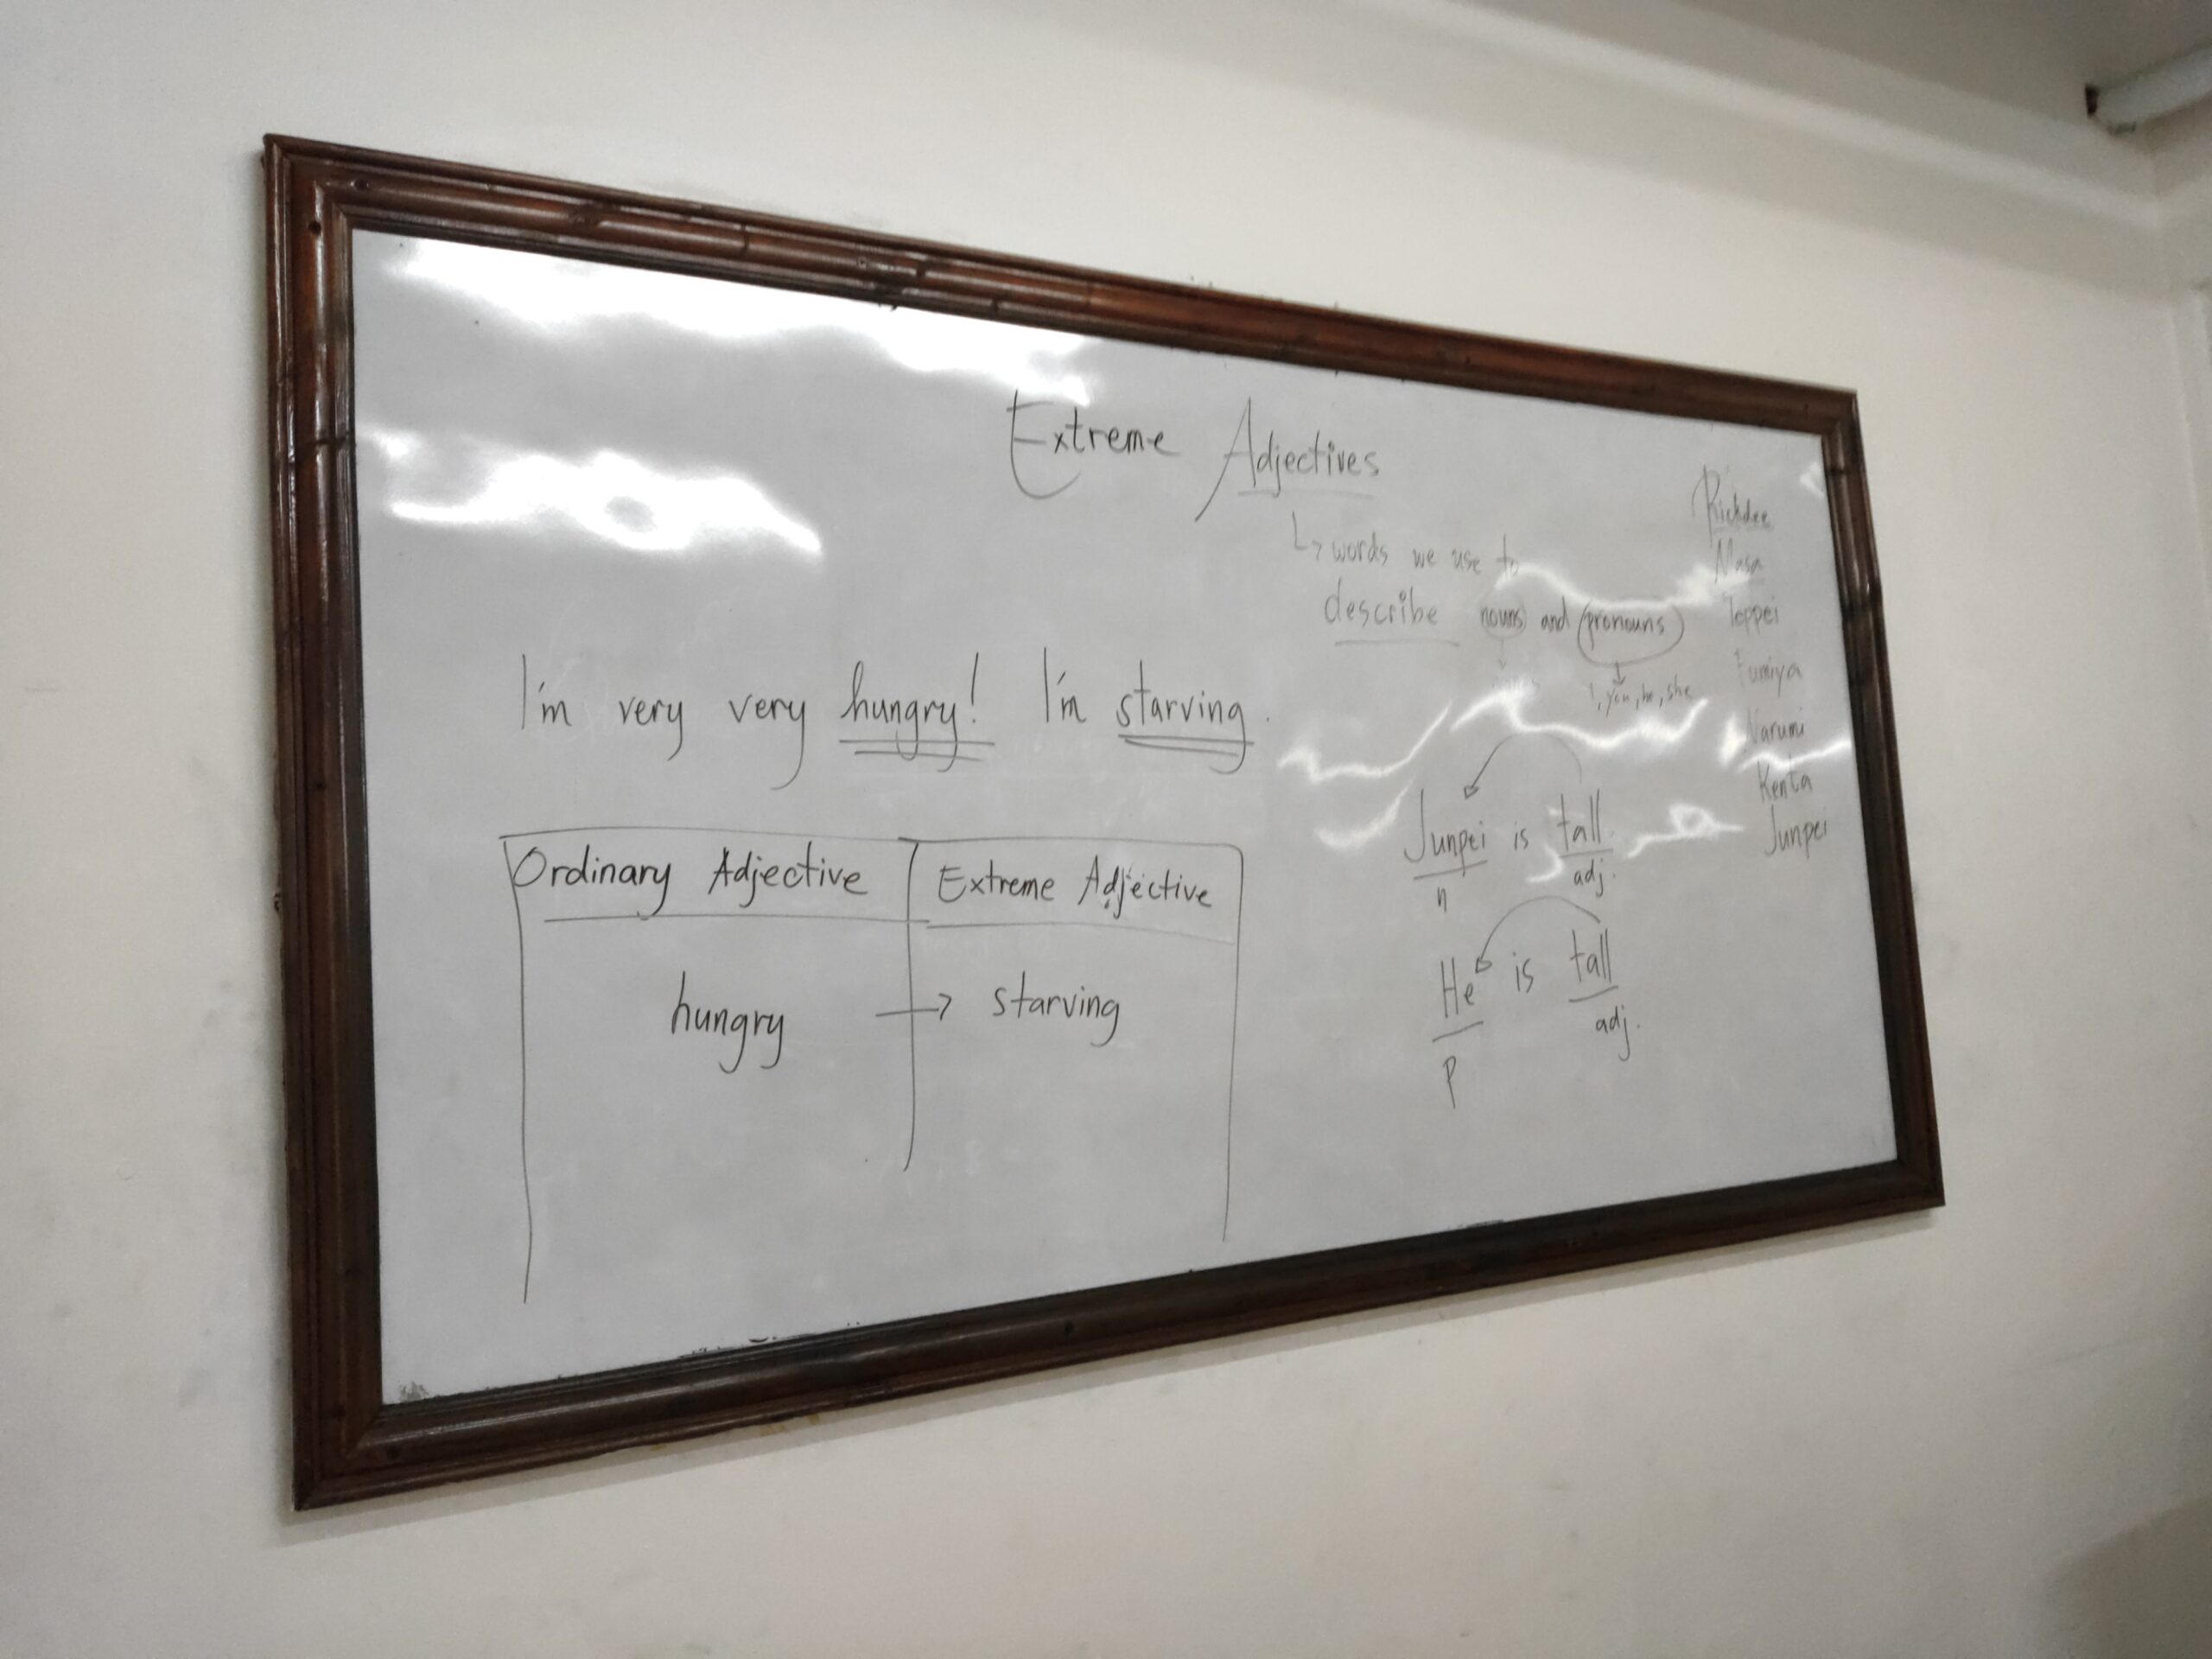 Extreme Adjectives
↳ words we use to
describe nouns and pronouns
I, you, he, she
I'm very very hungry! I'm starving.
Ordinary Adjective Extreme Adjective
hungry → starving
Junpei is tall.
n adj.
He is tall
p adj.
Richdee
Masa
Teppei
Fumiya
Narumi
Kenta
Junpei